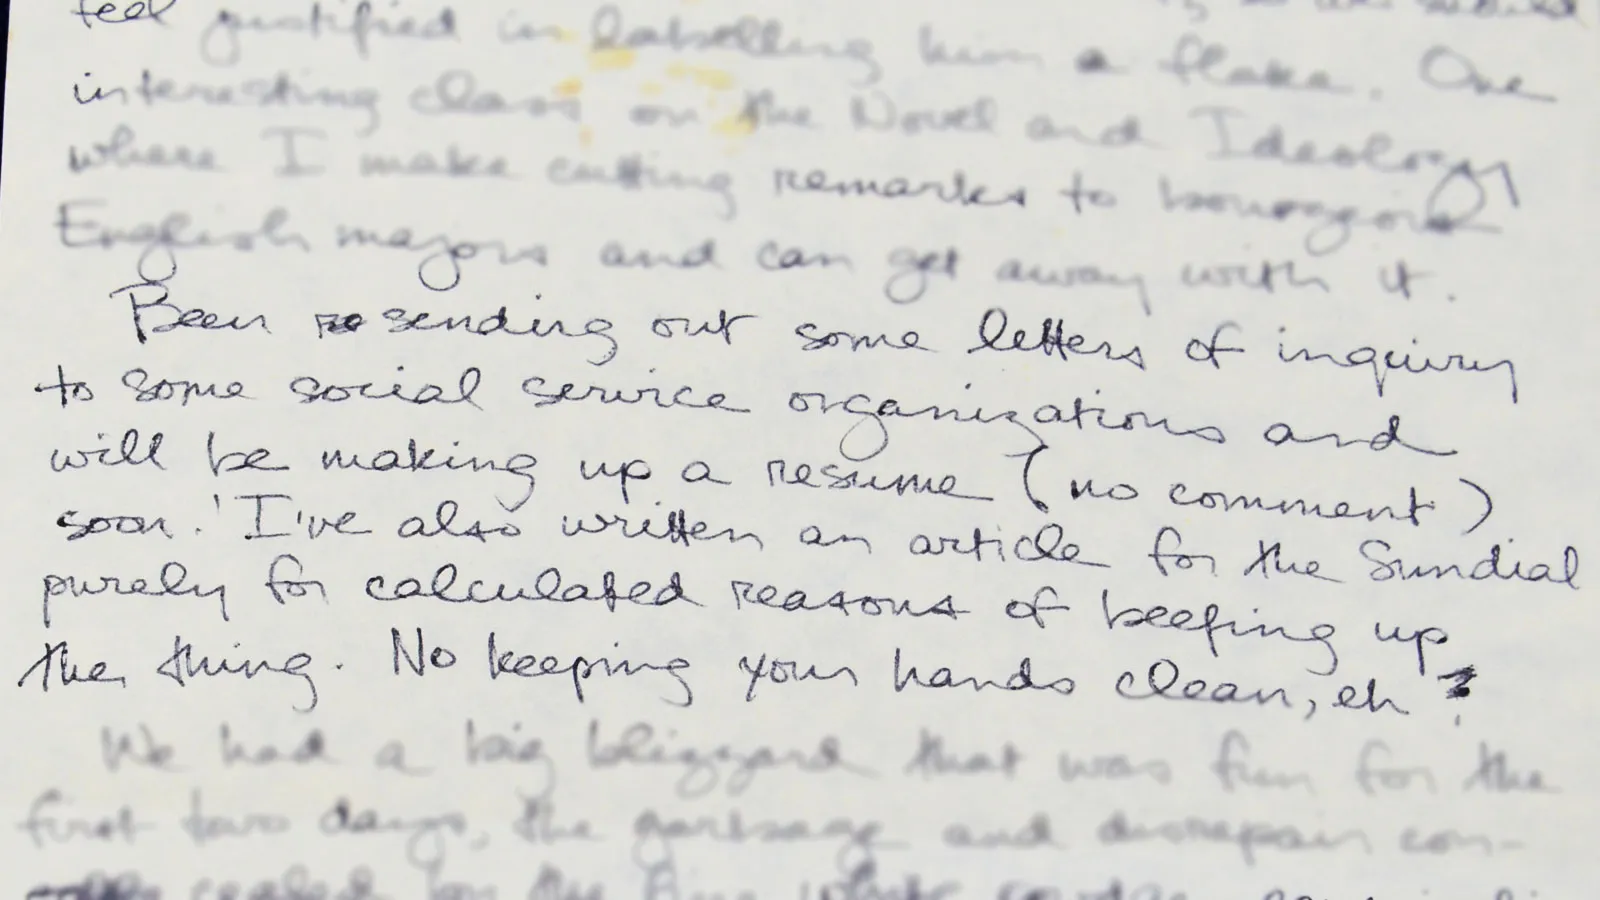 feel justified in labelling him a flake. One
interesting class on the Novel and Ideology
where I make cutting remarks to bourgeois
English majors and can get away with it.
Been sending out some letters of inquiry
to some social service organizations and
will be making up a resume (no comment)
soon. I've also written an article for the Sundial
purely for calculated reasons of beefing up
the thing. No keeping your hands clean, eh?
We had a big blizzard that was fun for the
first two days, the garbage and disrepair con-
by the